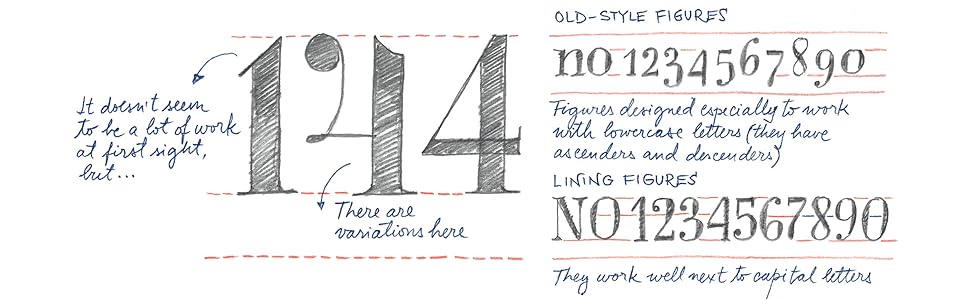 It doesn't seem
to be a lot of work
at first sight,
but...
114
There are
variations here
OLD-STYLE FIGURES
no 1234567890
Figures designed especially to work
with lowercase letters (they have
ascenders and descenders)
LINING FIGURES
NO 1234567890
They work well next to capital letters